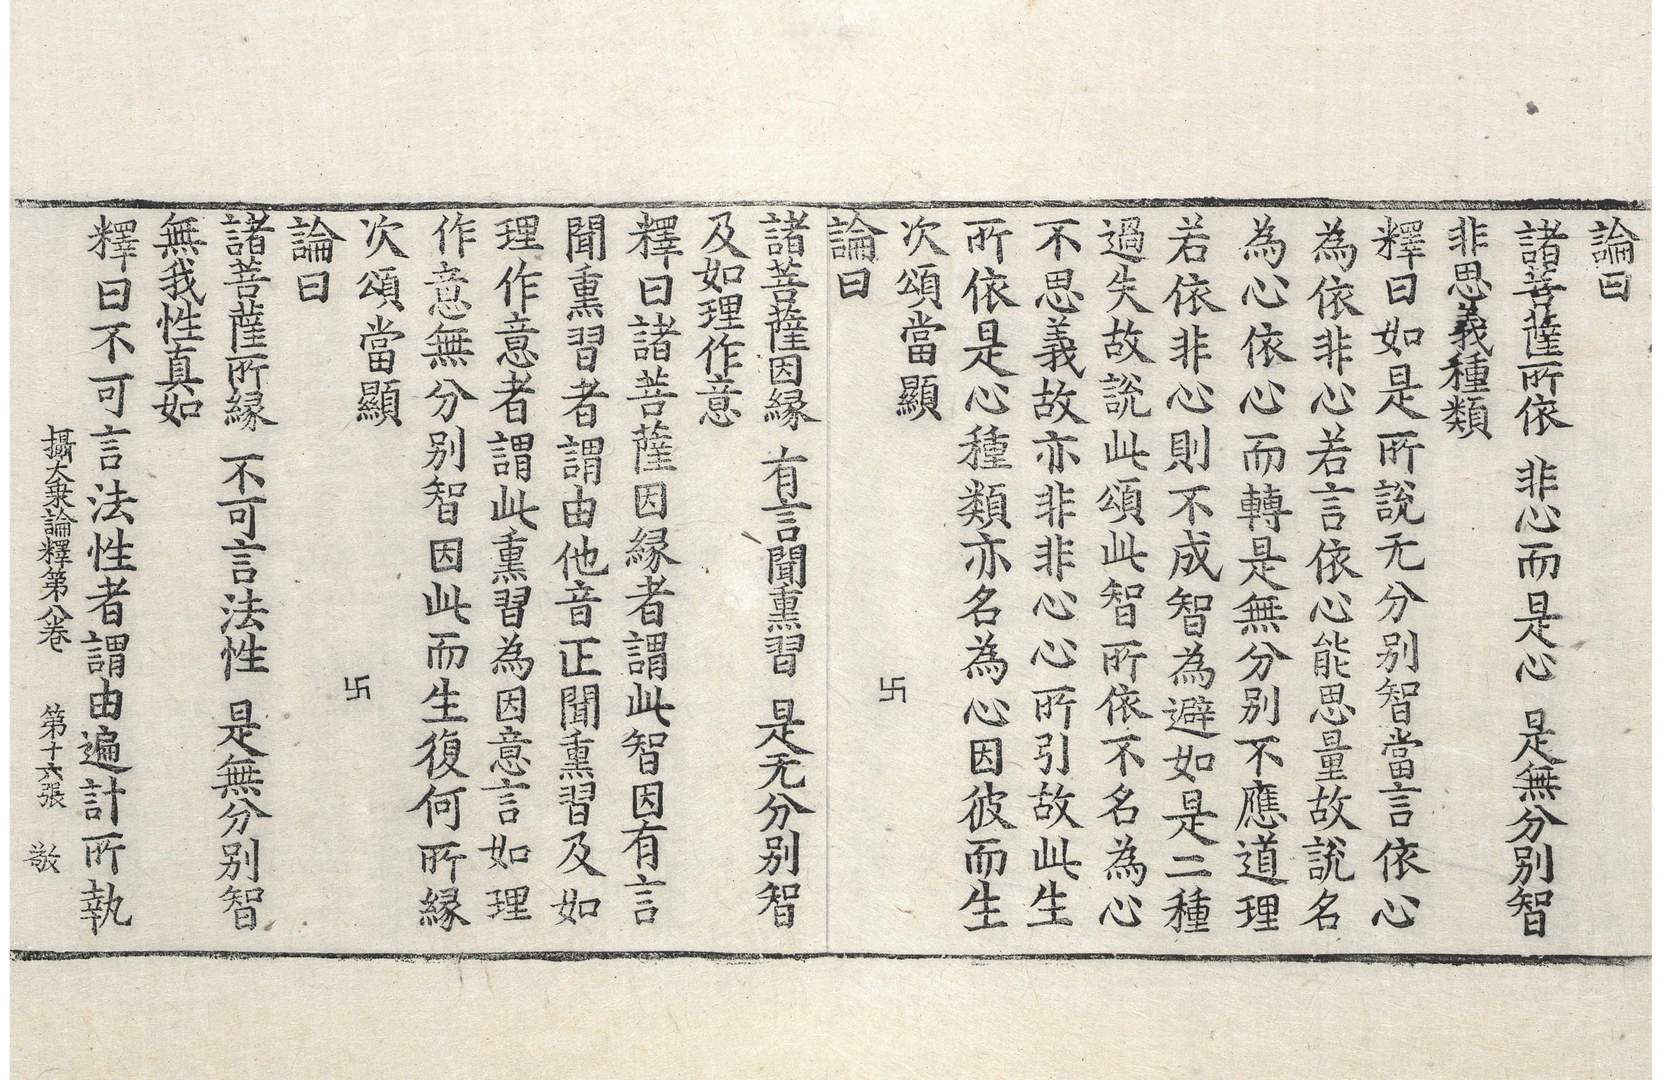 論曰
諸菩薩所依　非心而是心　是無分別智
非思義種類
釋曰如是所說无分別智當言依心
為依非心若言依心能思量故說名
為心依心而轉是無分別不應道理
若依非心則不成智為避如是二種
過失故說此頌此智所依不名為心
不思義故亦非非心心所引故此生
所依是心種類亦名為心因彼而生
次頌當顯　卐
論曰
諸菩薩因縁　有言聞熏習　是无分別智
及如理作意
釋曰諸菩薩因縁者謂此智因有言
聞熏習者謂由他音正聞熏習及如
理作意者謂此熏習為因意言如理
作意無分別智因此而生復何所縁
次頌當顯　卐
論曰
諸菩薩所縁　不可言法性　是無分別智
無我性真如
釋曰不可言法性者謂由遍計所執
攝大乘論釋第八卷　第十六張　敬